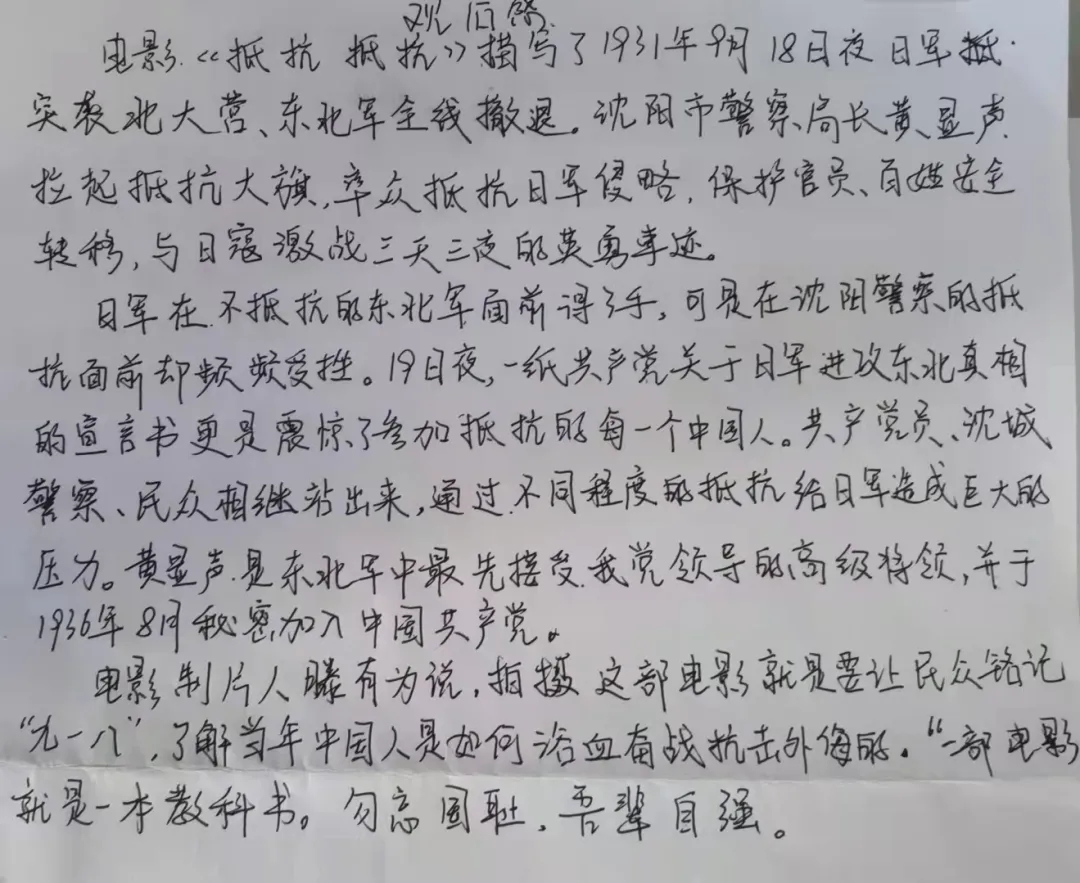 观后感
电影《抵抗 抵抗》描写了1931年9月18日夜日军抵
突袭北大营、东北军全线撤退。沈阳市警察局长黄显声
拉起抵抗大旗,率众抵抗日军侵略,保护官员、百姓安全
转移,与日寇激战三天三夜的英勇事迹。
日军在不抵抗的东北军面前得了手,可是在沈阳警察的抵
抗面前却频频受挫。19日夜,一纸共产党关于日军进攻东北真相
的宣言书更是震惊了参加抵抗的每一个中国人。共产党员、沈城
警察、民众相继站出来,通过不同程度的抵抗给日军造成巨大的
压力。黄显声是东北军中最先接受我党领导的高级将领,并于
1936年8月秘密加入中国共产党。
电影制片人滕有为说,拍摄这部电影就是要让民众铭记
“九一八”,了解当年中国人是如何浴血奋战抗击外侮的。“一部电影
就是一本教科书。勿忘国耻,吾辈自强。